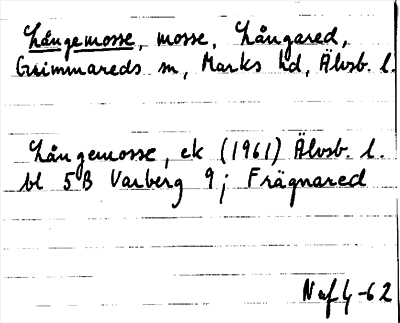 Långemosse, mosse, Långared,
Grimmareds sn, Marks hd, Älvsb. l.
Långemosse, ek (1961) Älvsb. l.
bl 5B Varberg 9; Frägnared